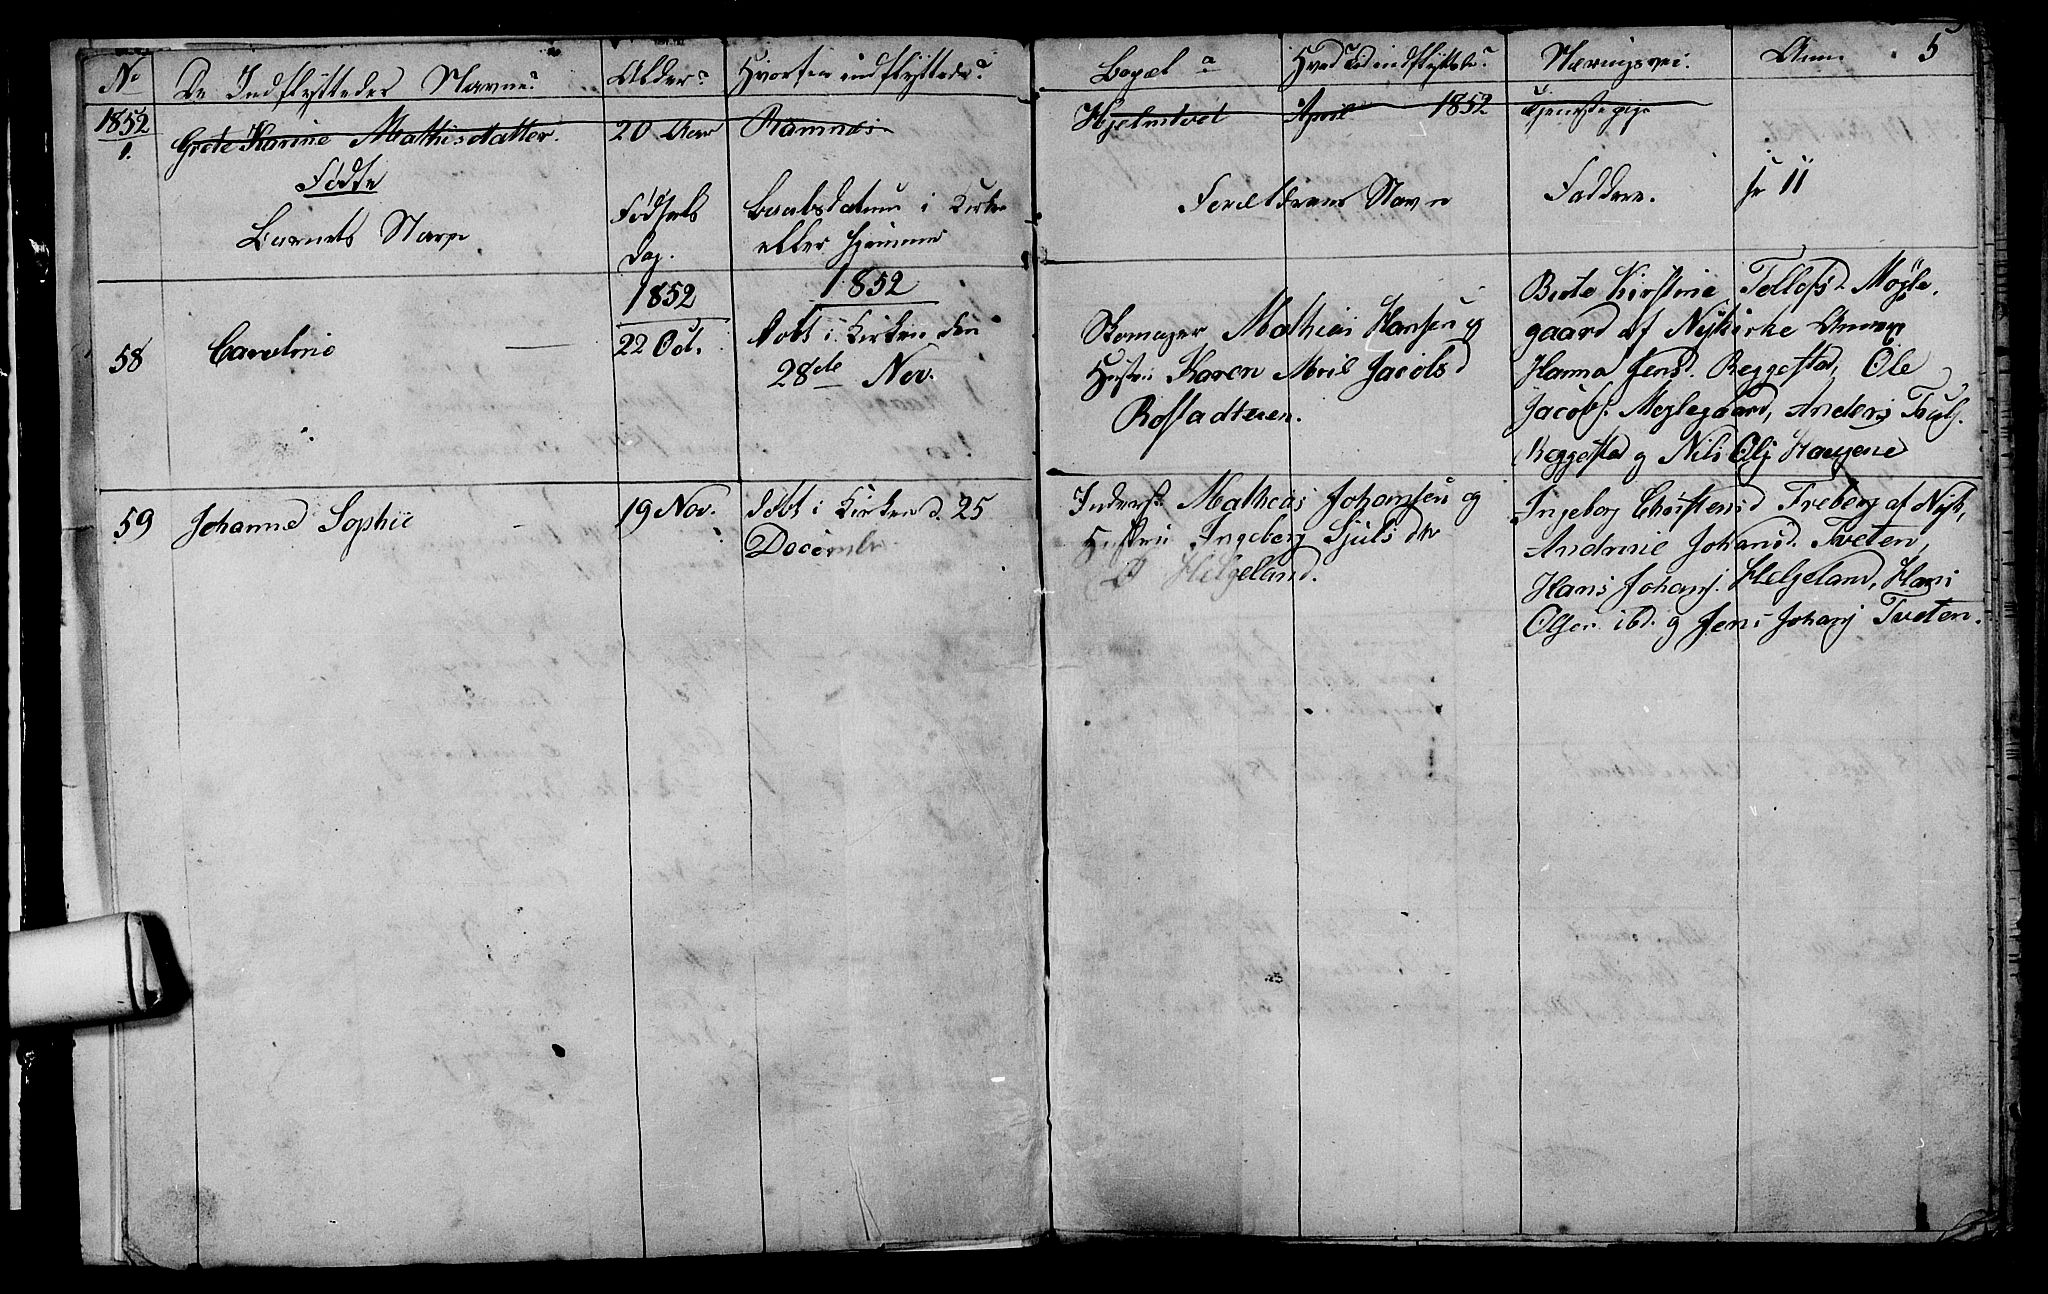 No De Indflyttedes Navne. Alder. Hvorfra indflyttede. Bopæl Hvad Tid indflyttede. Næringsvei. Anm 5
1852
1. Grete Karine Mathisdatter. 20 Aar Ramnæs Hjelmtvet April 1852 Tjenestepige
Fødte
Barnets Navn
Fødsels
Dag.
Daabsdatum i Kirke
eller hjemme
Forældrenes Navn
Faddere.
11
58 Caroline
1852
22 Oct.
1852
døbt i Kirken den
28de Nov.
Skomager Mathias Hansen og
Hustru Karen Jacobsd
Rostadteien.
Berte Kirstine Tollefsd. Møgle
gaard af Nykirke
Hanna Jensd. Beggestad, Ole
Jacobs. Meglegaard, Anders
Beggestad og Nils Ols Haugene
59 Johanne Sophie
19 Nov.
døbt i Kirken d. 25
December
Inderst Mathias Johansen og
Hustru Ingeborg Sjulsdtr
Helgeland.
Ingeborg Christensd Freberg af Nyk,
Andrine Johansd. Tveten,
Hans Johans. Helgeland, Hans
Olsen ibd. og Jens Johans Tveten.